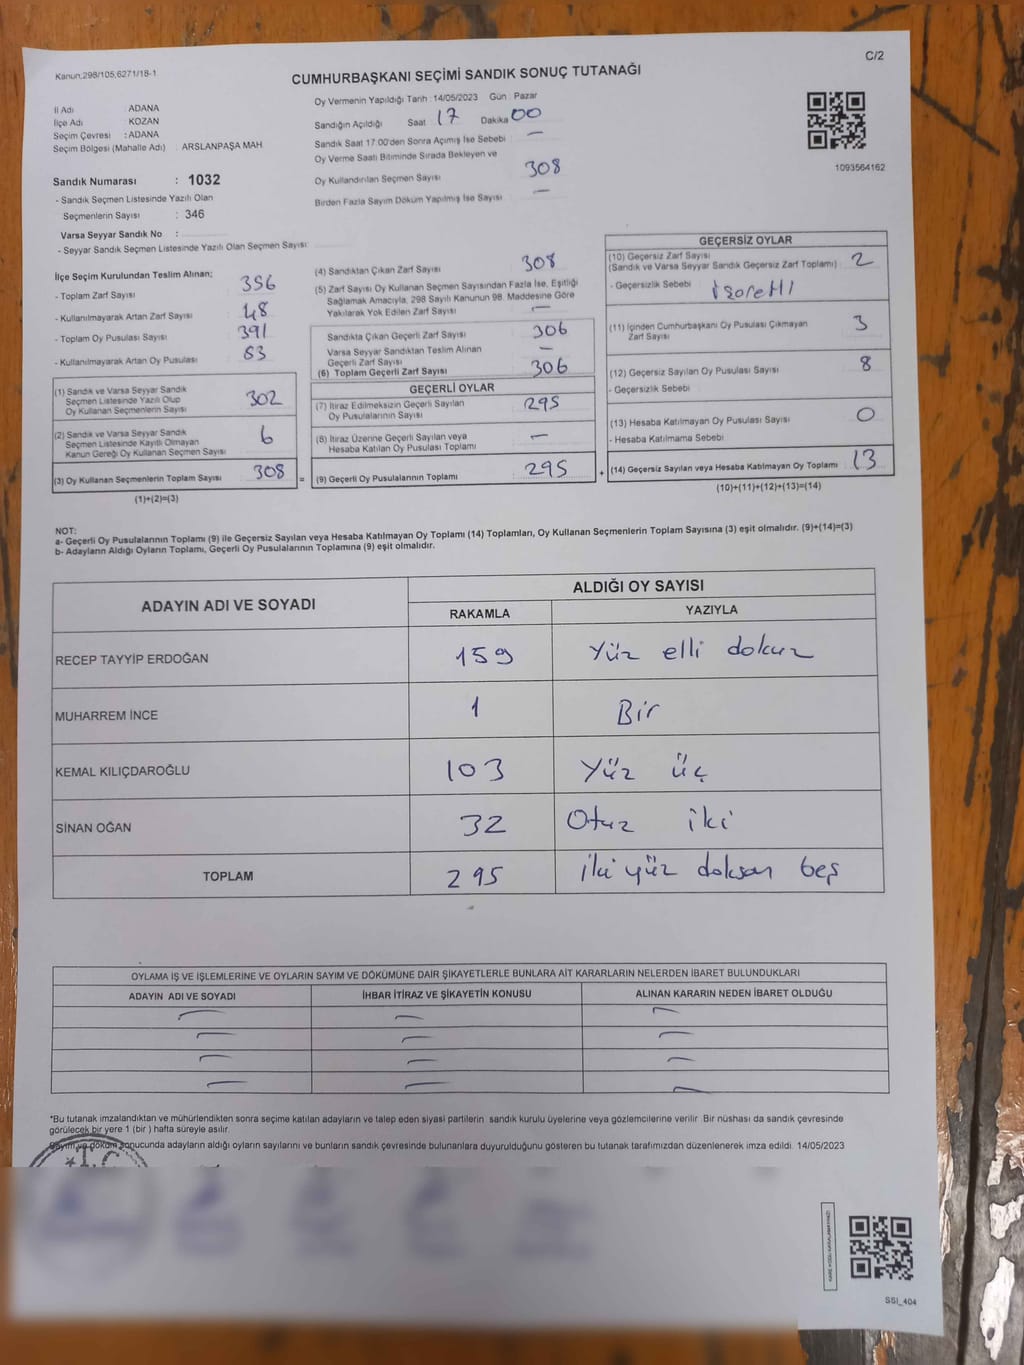 Kanun,298/105,6271/18-1
C/2
CUMHURBAŞKANI SEÇİMİ SANDIK SONUÇ TUTANAĞI
İl Adı : ADANA
İlçe Adı : KOZAN
Seçim Çevresi : ADANA
Seçim Bölgesi (Mahalle Adı) : ARSLANPAŞA MAH
Oy Vermenin Yapıldığı Tarih : 14/05/2023 Gün : Pazar
Sandığın Açıldığı Saat 17 Dakika 00
Sandık Saat 17:00'den Sonra Açımış İse Sebebi —
Oy Verme Saati Bitiminde Sırada Bekleyen ve
Oy Kullandırılan Seçmen Sayısı 308
Birden Fazla Sayım Döküm Yapılmış İse Sayısı —
1093564162
Sandık Numarası : 1032
- Sandık Seçmen Listesinde Yazılı Olan
Seçmenlerin Sayısı : 346
Varsa Seyyar Sandık No :
- Seyyar Sandık Seçmen Listesinde Yazılı Olan Seçmen Sayısı:
İlçe Seçim Kurulundan Teslim Alınan;
- Toplam Zarf Sayısı 356
- Kullanılmayarak Artan Zarf Sayısı 48
- Toplam Oy Pusulası Sayısı 391
- Kullanılmayarak Artan Oy Pusulası 83
(1) Sandık ve Varsa Seyyar Sandık
Seçmen Listesinde Yazılı Olup
Oy Kullanan Seçmenlerin Sayısı 302
(2) Sandık ve Varsa Seyyar Sandık
Seçmen Listesinde Kayıtlı Olmayan
Kanun Gereği Oy Kullanan Seçmen Sayısı 6
(3) Oy Kullanan Seçmenlerin Toplam Sayısı 308 =
(1)+(2)=(3)
(4) Sandıktan Çıkan Zarf Sayısı 308
(5) Zarf Sayısı Oy Kullanan Seçmen Sayısından Fazla İse, Eşitliği
Sağlamak Amacıyla, 298 Sayılı Kanunun 98. Maddesine Göre
Yakılarak Yok Edilen Zarf Sayısı —
Sandıkta Çıkan Geçerli Zarf Sayısı 306
Varsa Seyyar Sandıktan Teslim Alınan
Geçerli Zarf Sayısı —
(6) Toplam Geçerli Zarf Sayısı 306
GEÇERLİ OYLAR
(7) İtiraz Edilmeksizin Geçerli Sayılan
Oy Pusulalarının Sayısı 295
(8) İtiraz Üzerine Geçerli Sayılan veya
Hesaba Katılan Oy Pusulası Toplamı —
(9) Geçerli Oy Pusulalarının Toplamı 295 +
GEÇERSİZ OYLAR
(10) Geçersiz Zarf Sayısı
(Sandık ve Varsa Seyyar Sandık Geçersiz Zarf Toplamı) 2
- Geçersizlik Sebebi İşaretli
(11) İçinden Cumhurbaşkanı Oy Pusulası Çıkmayan
Zarf Sayısı 3
(12) Geçersiz Sayılan Oy Pusulası Sayısı 8
- Geçersizlik Sebebi
(13) Hesaba Katılmayan Oy Pusulası Sayısı 0
- Hesaba Katılmama Sebebi
(14) Geçersiz Sayılan veya Hesaba Katılmayan Oy Toplamı 13
(10)+(11)+(12)+(13)=(14)
NOT:
a- Geçerli Oy Pusulalarının Toplamı (9) ile Geçersiz Sayılan veya Hesaba Katılmayan Oy Toplamı (14) Toplamları, Oy Kullanan Seçmenlerin Toplam Sayısına (3) eşit olmalıdır. (9)+(14)=(3)
b- Adayların Aldığı Oyların Toplamı, Geçerli Oy Pusulalarının Toplamına (9) eşit olmalıdır.
ADAYIN ADI VE SOYADI
ALDIĞI OY SAYISI
RAKAMLA YAZIYLA
RECEP TAYYİP ERDOĞAN 159 Yüz elli dokuz
MUHARREM İNCE 1 Bir
KEMAL KILIÇDAROĞLU 103 Yüz üç
SİNAN OĞAN 32 Otuz iki
TOPLAM 295 iki yüz doksan beş
OYLAMA İŞ VE İŞLEMLERİNE VE OYLARIN SAYIM VE DÖKÜMÜNE DAİR ŞİKAYETLERLE BUNLARA AİT KARARLARIN NELERDEN İBARET BULUNDUKLARI
ADAYIN ADI VE SOYADI İHBAR İTİRAZ VE ŞİKAYETİN KONUSU ALINAN KARARIN NEDEN İBARET OLDUĞU
— — —
— — —
— — —
— — —
*Bu tutanak imzalandıktan ve mühürlendikten sonra seçime katılan adayların ve talep eden siyasi partilerin sandık kurulu üyelerine veya gözlemcilerine verilir. Bir nüshası da sandık çevresinde
görülecek bir yere 1 (bir) hafta süreyle asılır.
Sayım ve döküm sonucunda adayların aldığı oyların sayılarını ve bunların sandık çevresinde bulunanlara duyurulduğunu gösteren bu tutanak tarafımızdan düzenlenerek imza edildi. 14/05/2023
T.C.
SSI_404